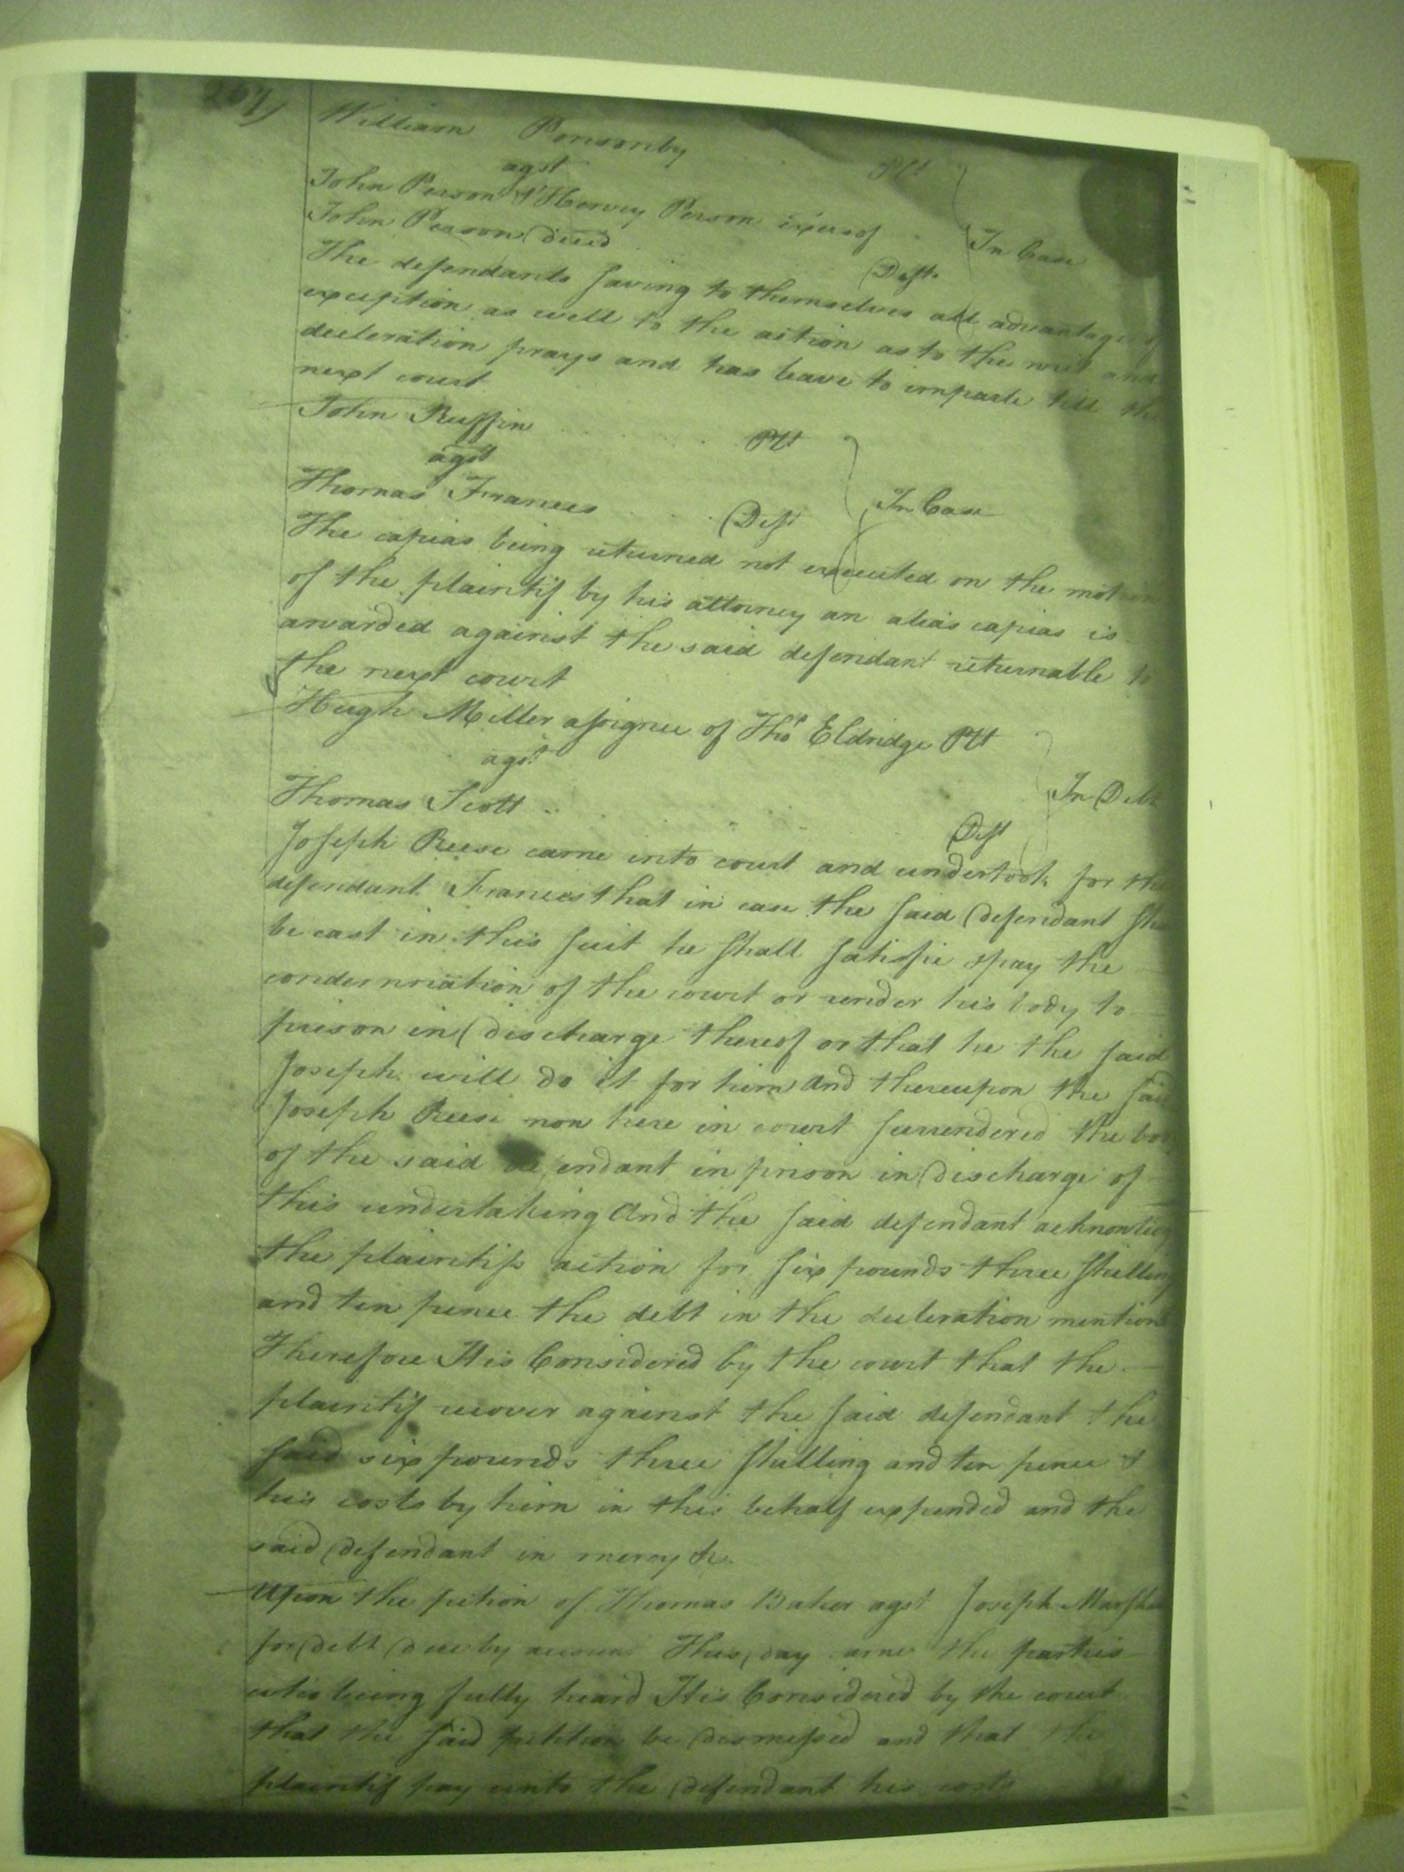 William Ponsonby Plt
agst
John Person & Hervey Person exers of In Case
John Person decd Deft.
The defendants saving to themselves all advantage of
exception as well to the action as to the writ and
decleration prays and has leave to imparle till the
next court
John Ruffin Plt
agst In Case
Thomas Frances Deft
The capias being returned not executed on the motion
of the plaintif by his attorney an alias capias is
awarded against the said defendant returnable to
the next court
Hugh Miller assignee of Thos Eldridge Plt
agst In Debt
Thomas Scott Deft
Joseph Reese came into court and undertook for the
defendant Frances that in case the said defendant sha
be cast in this suit he shall satisfie & pay the
condemnation of the court or render his body to
prison in discharge thereof or that he the said
Joseph will do it for him and thereupon the said
Joseph Reese now here in court surrendered the bo
of the said endant in prison in discharge of
this undertaking and the said defendant acknowledg
the plaintifs action for six pounds three shilling
and ten pence the debt in the decleration mention
Therefore It is Considered by the court that the
plaintif recover against the said defendant the
said six pounds three shilling and ten pence &
his costs by him in this behalf expended and the
said defendant in mercy &c.
Upon the petion of Thomas Baker agst Joseph Marsha
for debt due by This day came the parties
who being fully heard It is Considered by the court
that the said petition be dismissed and that the
plaintif pay unto the defendant his costs